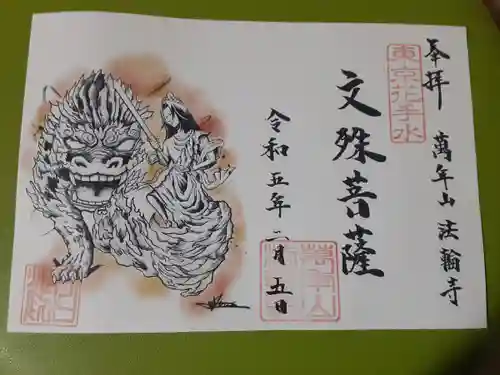 奉拝
東京花手水
萬年山 法輪寺
文殊菩薩
令和五年二月五日